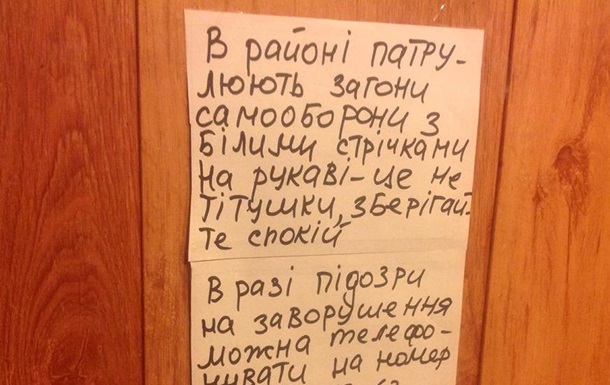 В районі патру-
люють загони
самооборони з
білими стрічками
на рукаві - це не
тітушки, зберігай-
те спокій
В разі підозри
на заворушення
можна телефо-
нувати на номер